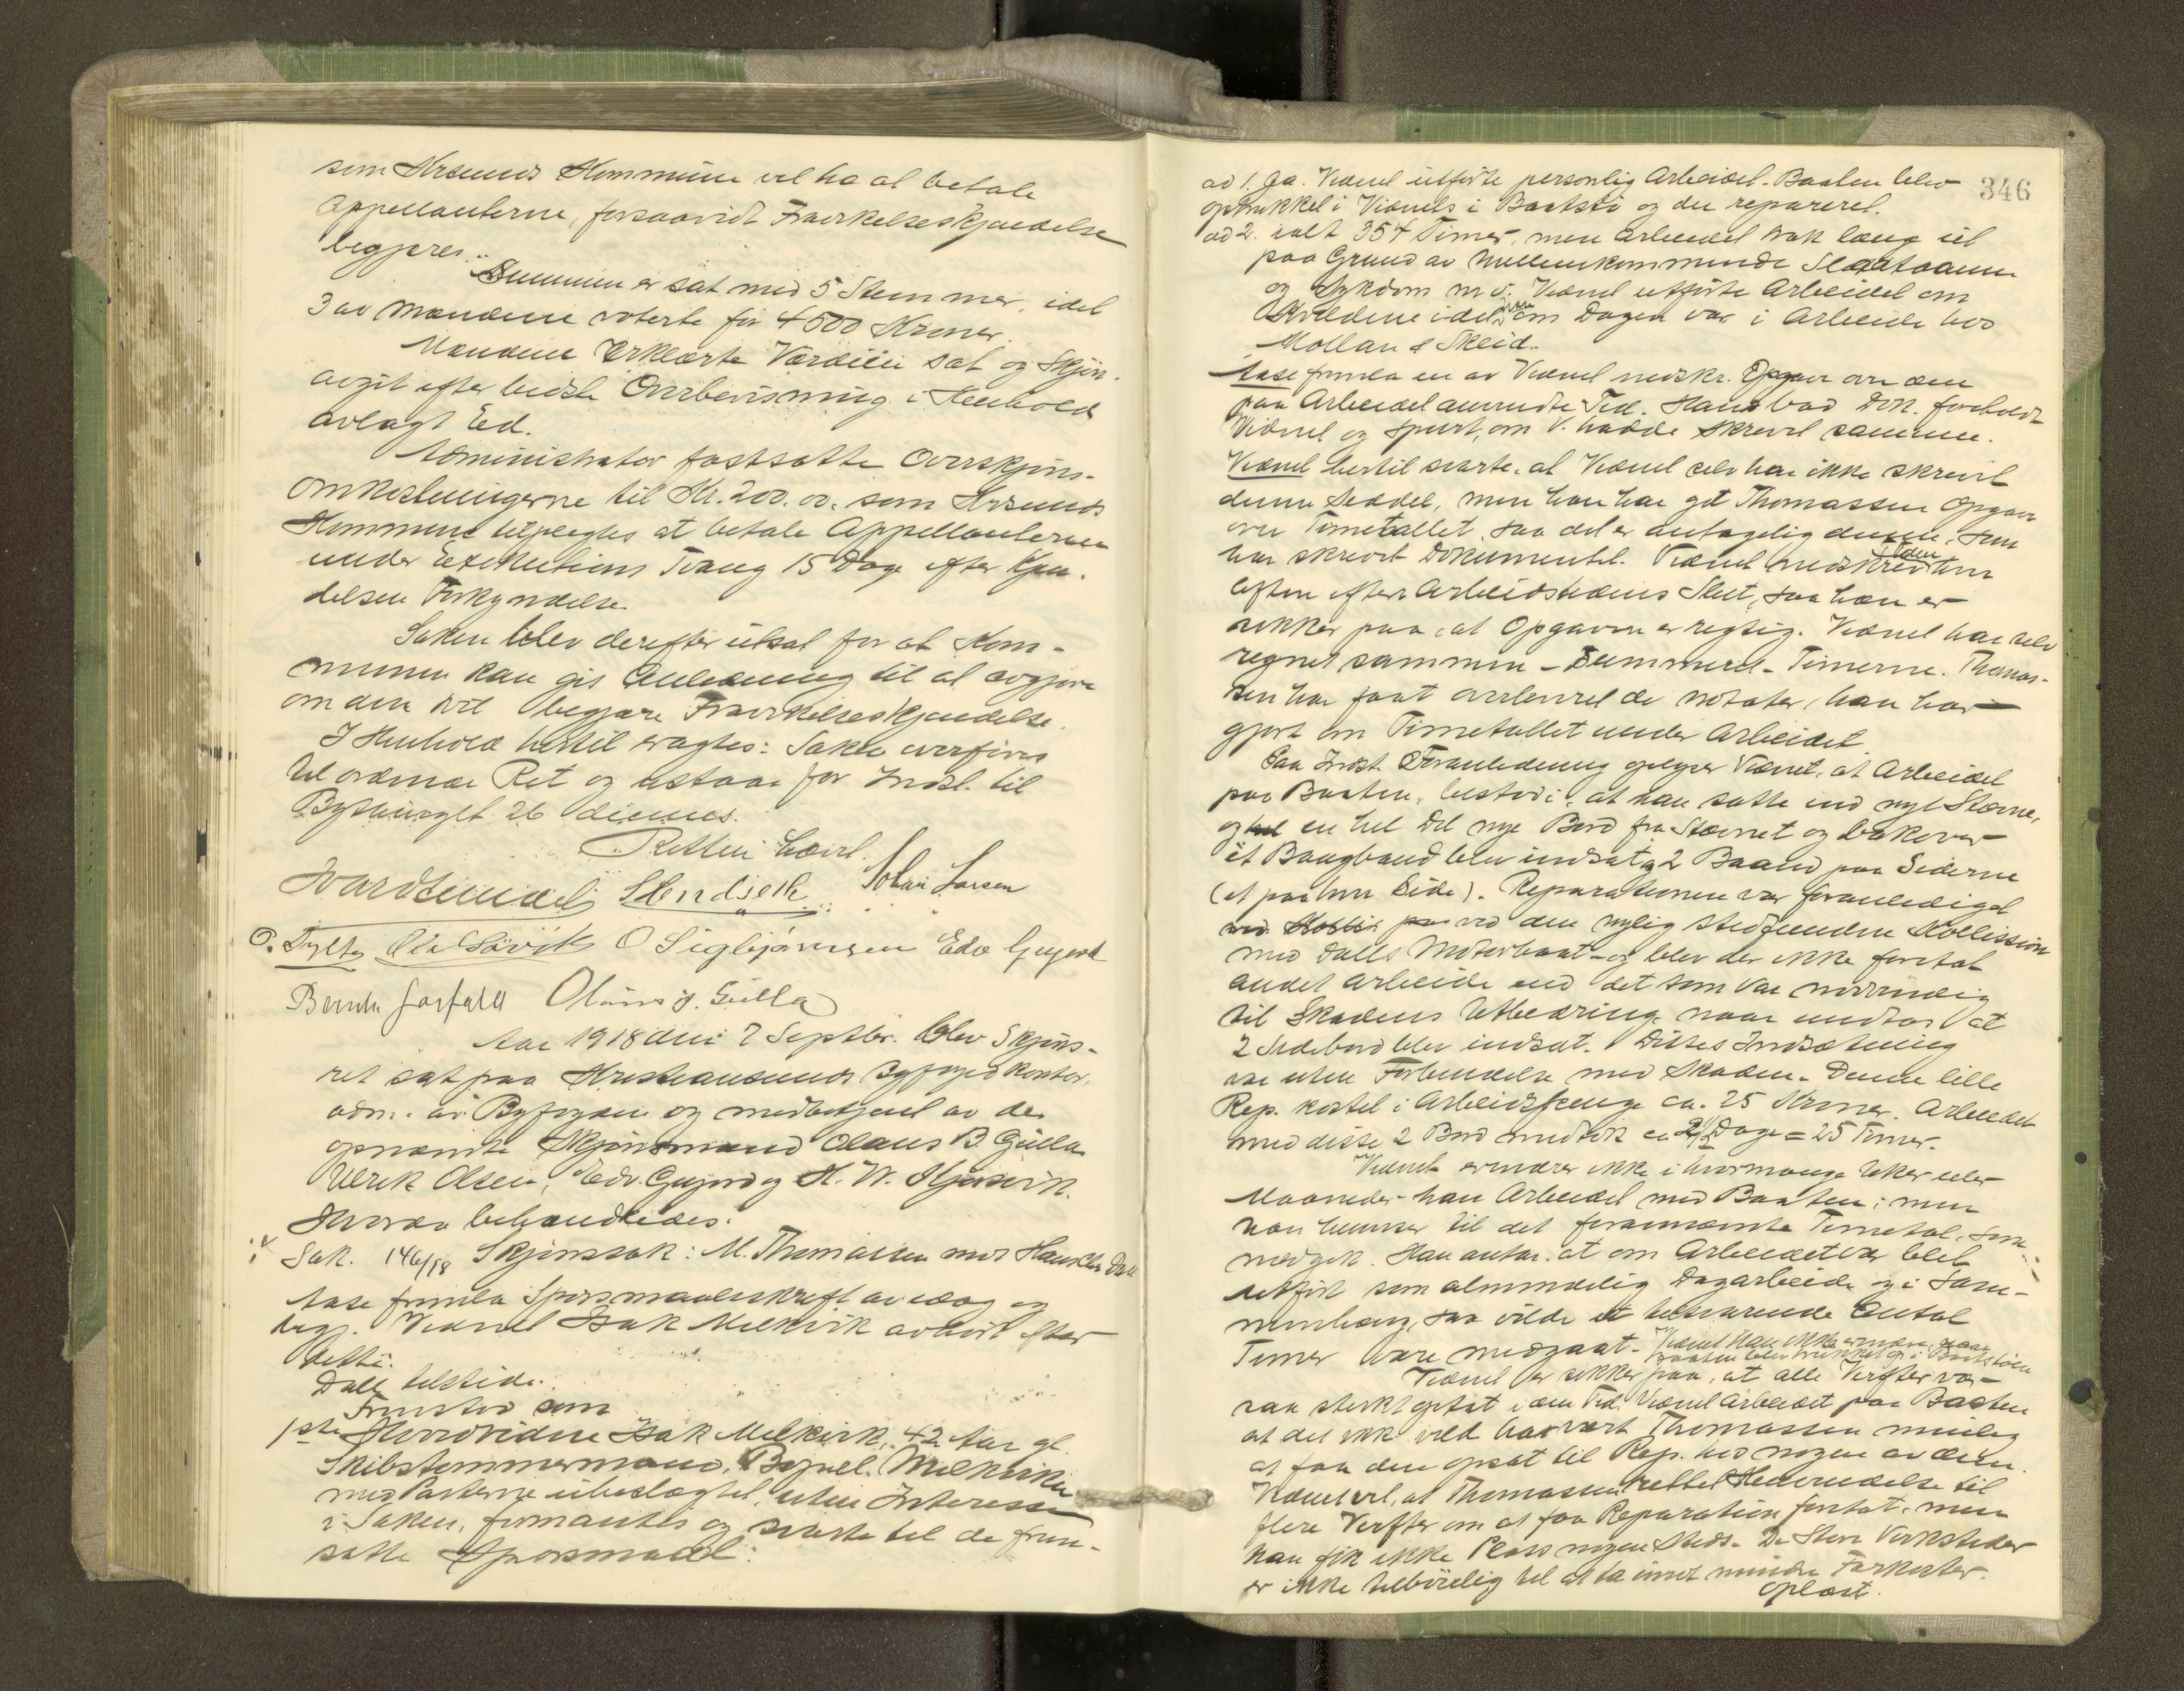 som Krsunds Kommune vil ha at betale
Appellanterne, forsaavidt Fravikelseskjendelse
begjæres.
Summen er sat med 5 Stemmer, idet
3 av Mændene voterte for 4500 Kroner.
Mændene erklærte Værdien sat og Skjøn
avgit efter bedste Overbevisning i Henhold
avlagt Ed.
Administrator fastsatte Overskjøns-
omkostningerne til Kr. 200.00. som Krsunds
Kommune tilpligtes at betale Appellanterne
under Exekutions Tvang 15 Dage efter Kjen-
delsen Forkyndelse.
Saken blev derefter utsat for at Kom-
munen kan gis Anledning til at avgjøre
om den vil begjære Fravikelseskjendelse.
I Henhold hertil eragtes: Saken overføres
til ordinær Ret og utstaar for Indst. til
Bytinget 26 dennes.
Retten hævet.
Sendseth Johan Larsen
O. Tylte Ole Løvik O Sigbjørnsen Edv Gujord
Bernh Forfald Olaus J. Gulla
Aar 1918 den 7 Septbr. blev Skjøns-
ret sat paa Kristiansunds Byfogedkontor,
adm. av Byfogden og medbetjent av de
opnævnte Skjønsmænd Olaus B Gulla
Ulrik Olsen, Edv. Gujord og H. W. Kjørsvik.
Hvorda behandledes:
Sak. 146/18 Skjønssak: M. Thomassen mot Hans Chr Dall
Aase fremla Spørsmaalsskrift av idag og
begj. Vidnet Isak Melkvik avhørt efter
dette.
Dall tilstede.
Fremstod som
1ste Hovedvidne Isak Melkvik, 42 Aar gl.
Skibstømmermand, Bopæl. Melkviken
med Parterne ubeslægtet, uten Interesse
i Saken, formantes og svarte til de frem-
satte Spørsmaal:
346
ad 1. Ja. Vidnet utførte personlig Arbeidet. Baaten blev
optrukket i Vidnets i Baatstø og der repareret.
ad 2. ialt 354 Timer, men Arbeidet trak længe ut
paa Grund av mellemkommende Slaataann
og Sykdom m v. Vidnet utførte Arbeidet om
Kvældene idet han om Dagen var i Arbeide hos
Mollan & Skeid.
Aase fremla en av Vidnet nedskr. Opgave over den
paa Arbeidet anvendte Tid. Han bad Dok. foreholdt
Vidnet og spurt, om V. hadde skrevet samme.
Vidnet hertil svarte, at Vidnet selv har ikke skrevet
denne Seddel, men han har git Thomassen Opgave
over Timetallet, saa det er antagelig denne, som
har skrevet Dokumentet. Vidnet nedskrev Tiden hver
Aften efter Arbeidstidens Slut, saa han er
sikker paa, at Opgaven er rigtig. Vidnet har selv
regnet sammen - Summeret - Timerne. Thomas-
sen har faat overlevert de notater, han har
gjort om Timetallet under Arbeidet.
Paa Indst. Foranledning oplyser Vidnet, at Arbeidet
paa Baaten, bestod i, at han satte ind nyt Stævne,
og en hel Del nye Bord fra Stævnet og bakover
et Baugbaand blev indsat og 2 Baand paa Siderne
(et paa hver Side). Reparationen var foranlediget
ved den nylig stedfundne Kollission
med Dalls Motorbaat - og blev der ikke foretat
andet Arbeide end det som var nødvendig
til Skadens Utbedring, naar undtas at
2 Sidebord blev indsat. Disses Indsætning
var uten Forbindelse med Skaden. Denne lille
Rep. kostet i Arbeidspenge ca. 25 Kroner. Arbeidet
med disse 2 Bord medtok ca 2½ Dage = 25 Timer.
Vidnet erindrer ikke i hvormange Uker eller
Maaneder han Arbeidet med Baaten; men
han henviser til det forannævnte Timetal, som
medgik. Han antar, at om Arbeidet var blet
utført som almindelig Dagarbeide og i Sam-
menhæng, saa vilde et tilsvarende Antal
Timer være medgaat. Vidnet kan ikke erindre naar
Baaten blev trukket op i Baatstøen
Vidnet er sikker paa, at alle Verfter var
saa sterkt optat i den Tid Vidnet arbeidet paa Baaten
at det ikke vilde ha været Thomassen mulig
at faa den opsat til Rep. hos nogen av dem.
Vidnet vet, at Thomassen rettet Henvendelse til
flere Verfter om at faa Reparation foretat, men
han fik ikke Plass nogen Steds. De Store Verksteder
er ikke tilbøielig til at ta imot mindre Farkoster.
Oplæst.